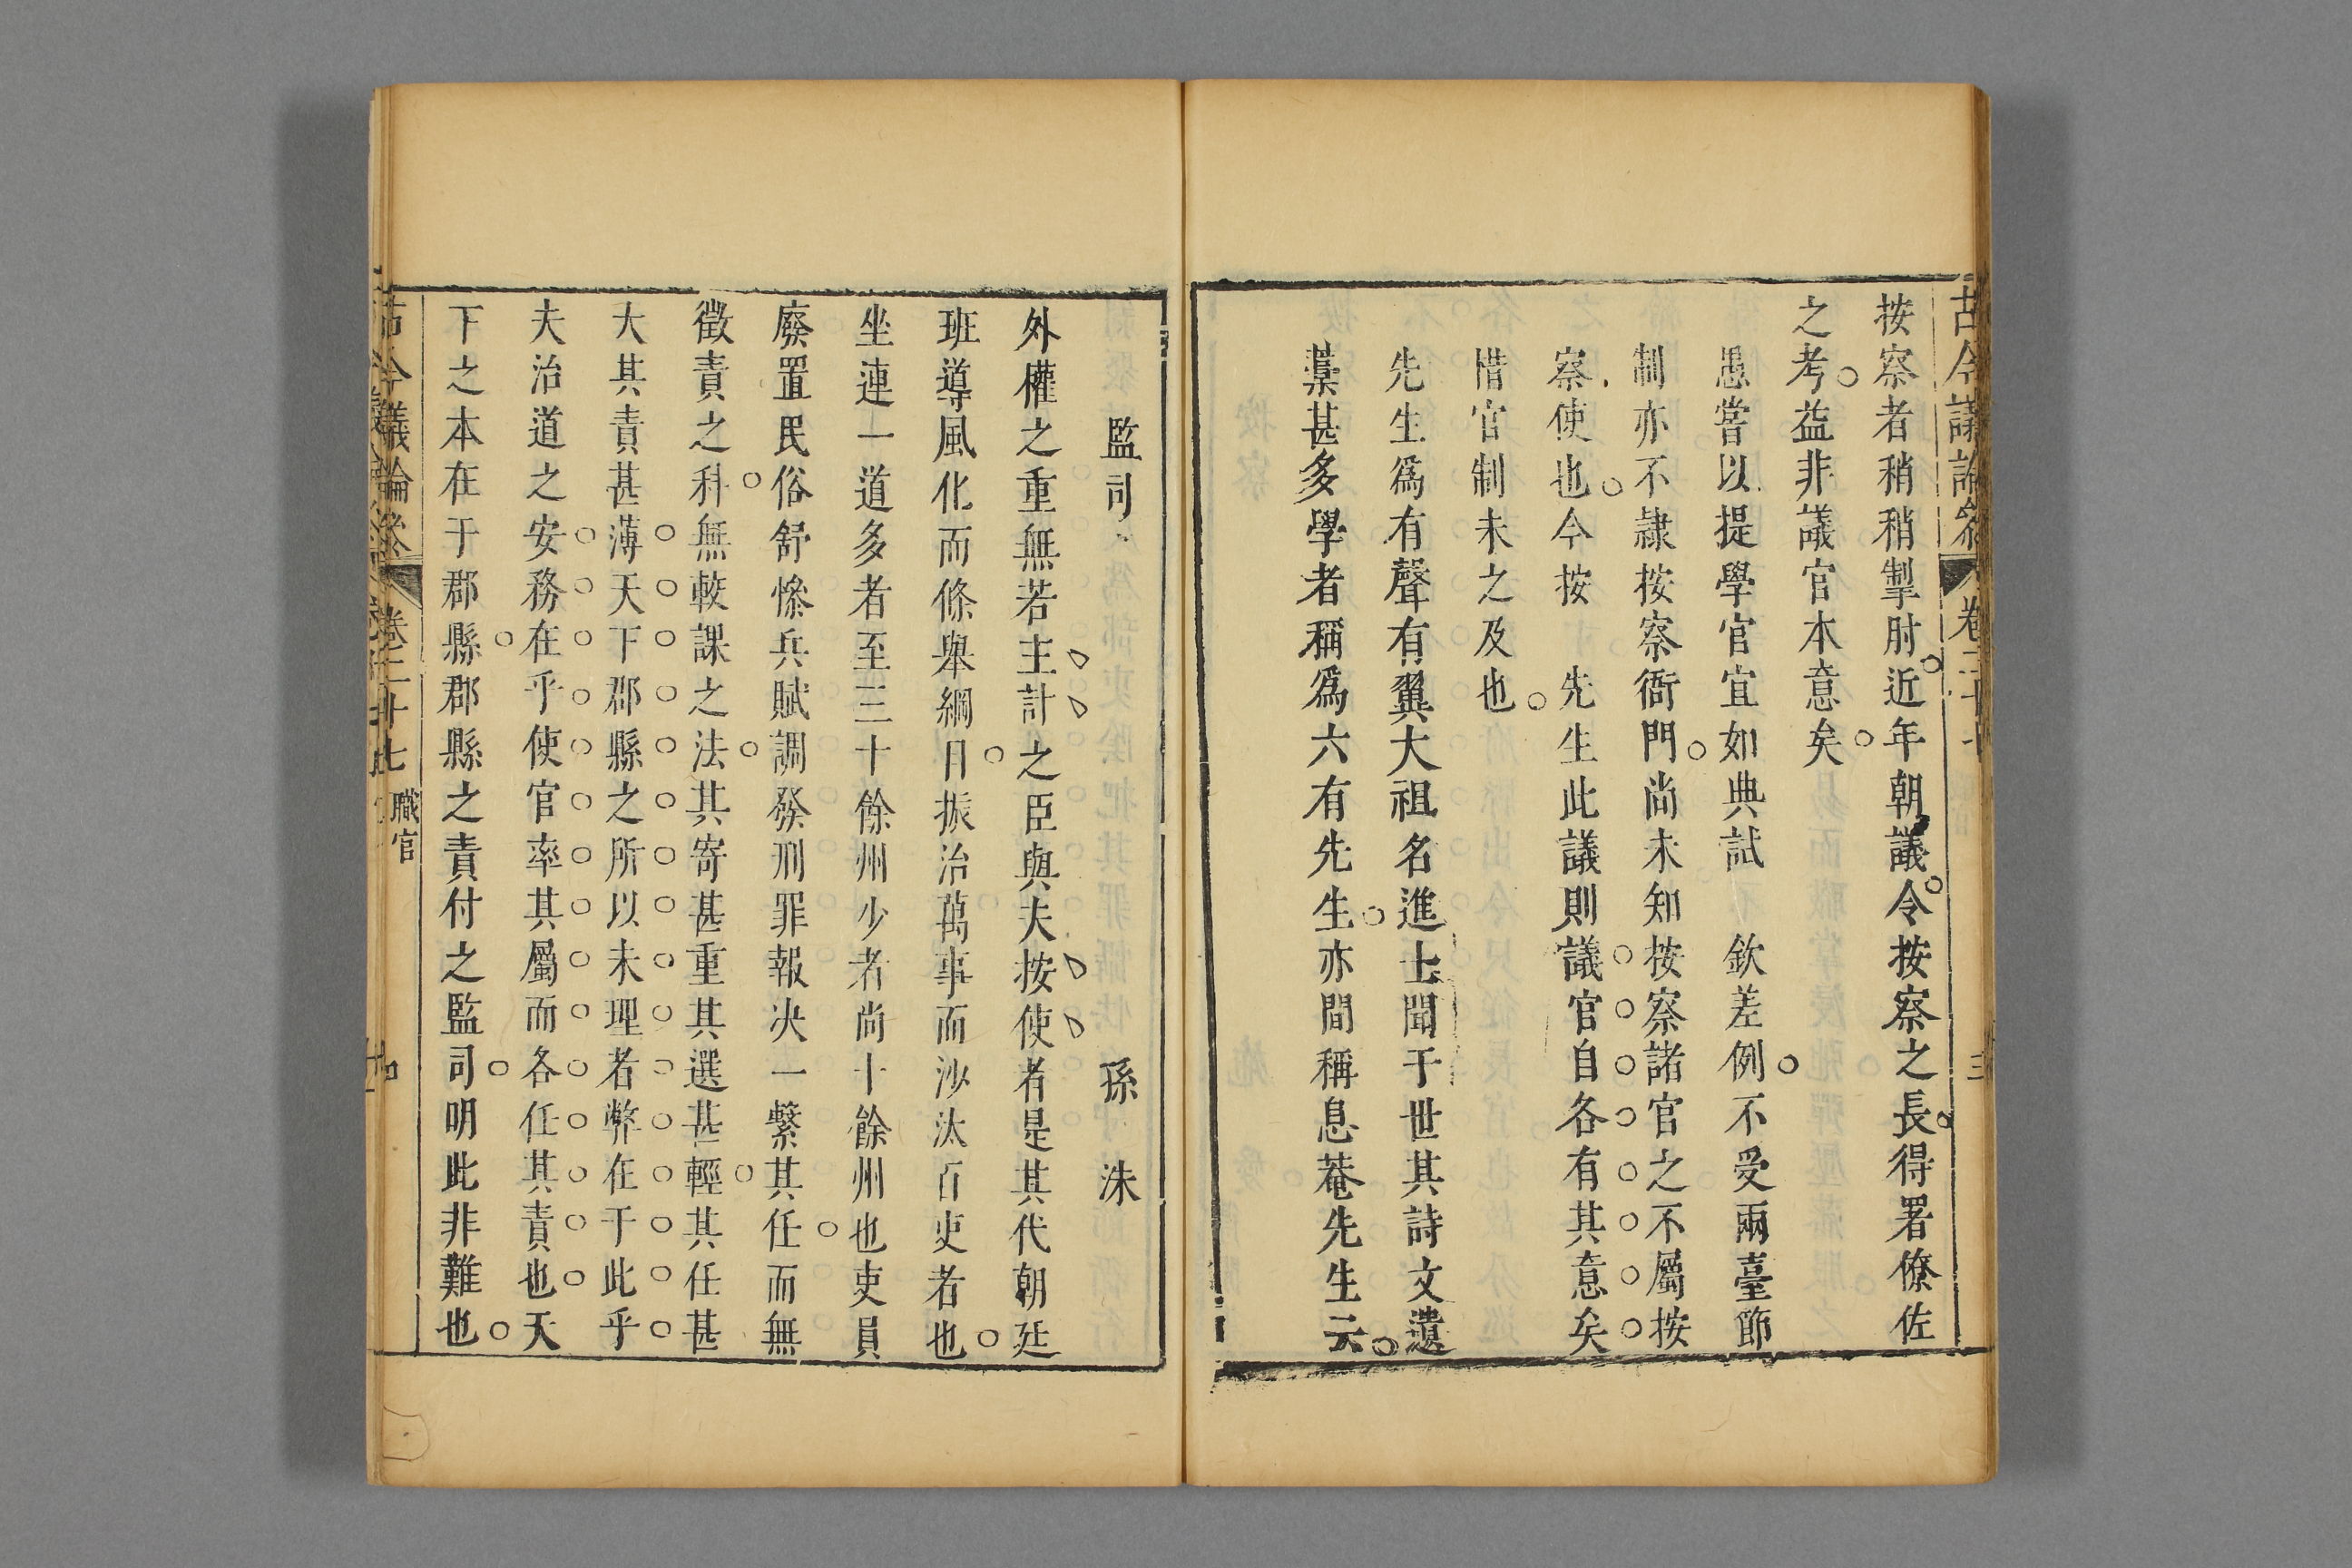 古今議論
卷二十
三
按察者稍稍掣肘近年朝議令按察之長得署僚佐
之考益非議官本意矣
愚嘗以提學官宜如典試 欽差例不受兩臺節
制亦不隷按察衙門尚未知按察諸官之不屬按
察使也今按 先生此議則議官自各有其意矣
惜官制未之及也
先生爲有聲有翼大祖名進士聞于世其詩文遺
藁甚多學者稱爲六有先生亦間稱息菴先生云
監司 孫洙
外權之重無若主計之臣與夫按使者是其代朝廷
班導風化而條舉綱目振治萬事而沙汰百吏者也
坐連一道多者至三十餘州少者尚十餘州也吏員
廢置民俗舒慘兵賦調發刑罪報决一繫其任而無
徵責之科無較課之法其寄甚重其選甚輕其任甚
大其責甚薄天下郡縣之所以未理者弊在于此乎
夫治道之安務在乎使官率其屬而各任其責也天
下之本在于郡縣郡縣之責付之監司明此非難也
古今議論參
卷二十七
職官
四